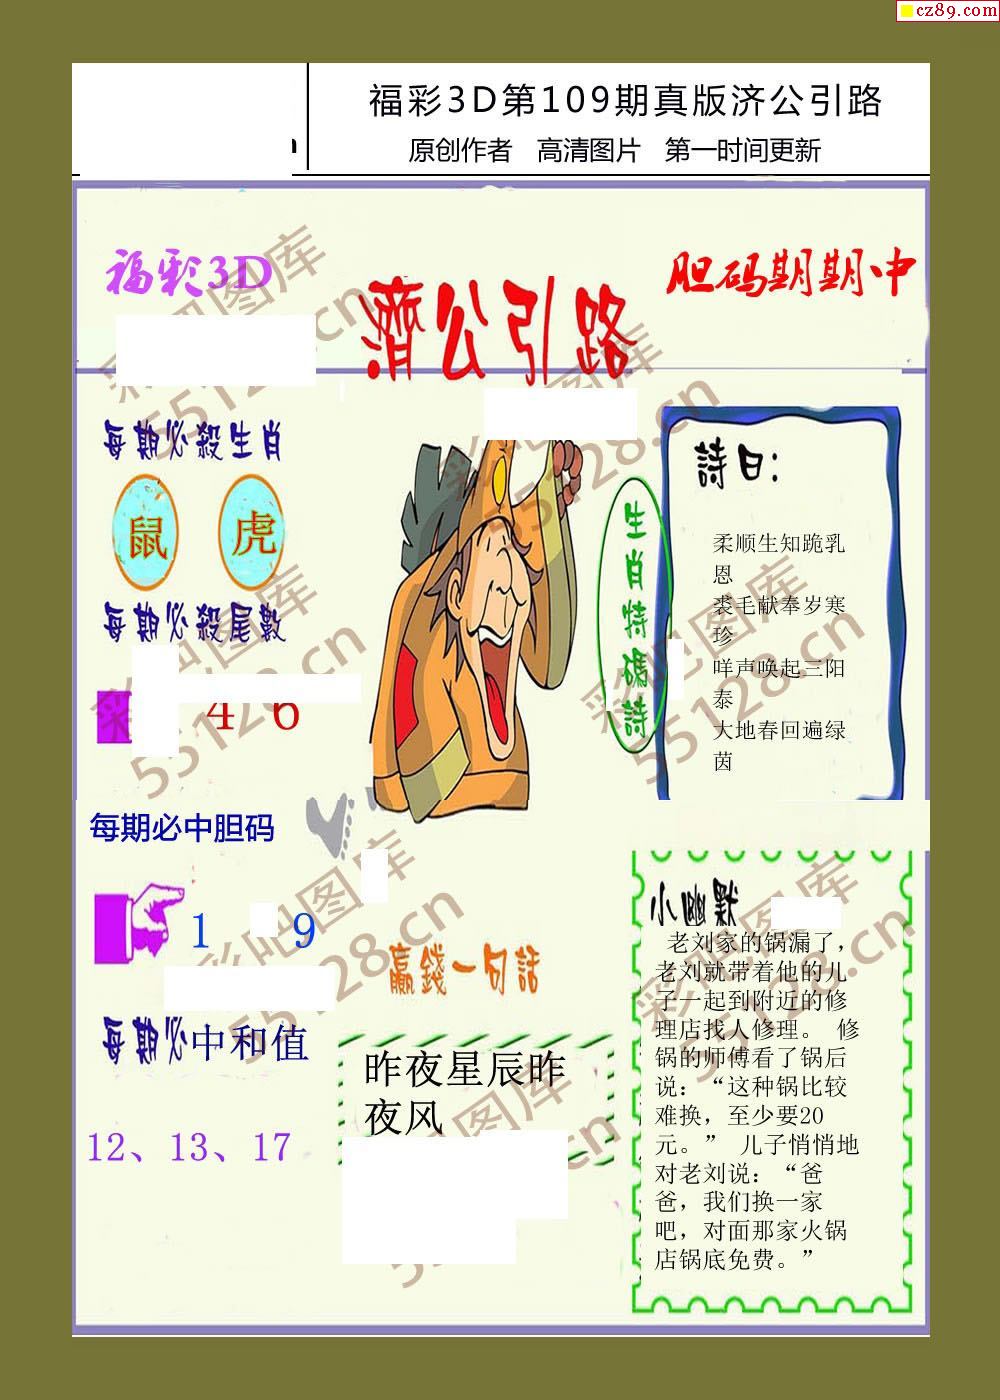 cz89.com
福彩3D第109期真版济公引路
原创作者 高清图片 第一时间更新
福彩3D
濟公引路
胆码期期中
每期必殺生肖
鼠 虎
每期必殺尾數
4 6
每期必中胆码
1 9
每期必中和值
12、13、17
生肖特碼詩
詩曰：
柔顺生知跪乳
恩
裘毛献奉岁寒
珍
咩声唤起三阳
泰
大地春回遍绿
茵
贏錢一句話
昨夜星辰昨
夜风
小幽默
老刘家的锅漏了，
老刘就带着他的儿
子一起到附近的修
理店找人修理。 修
锅的师傅看了锅后
说：“这种锅比较
难换，至少要20
元。” 儿子悄悄地
对老刘说：“爸
爸，我们换一家
吧，对面那家火锅
店锅底免费。”
彩吧图库
55128.cn
彩吧图库
55128.cn
彩吧图库
55128.cn
彩吧图库
55128.cn
彩吧图库
55128.cn
彩吧图库
55128.cn
彩吧图库
55128.cn